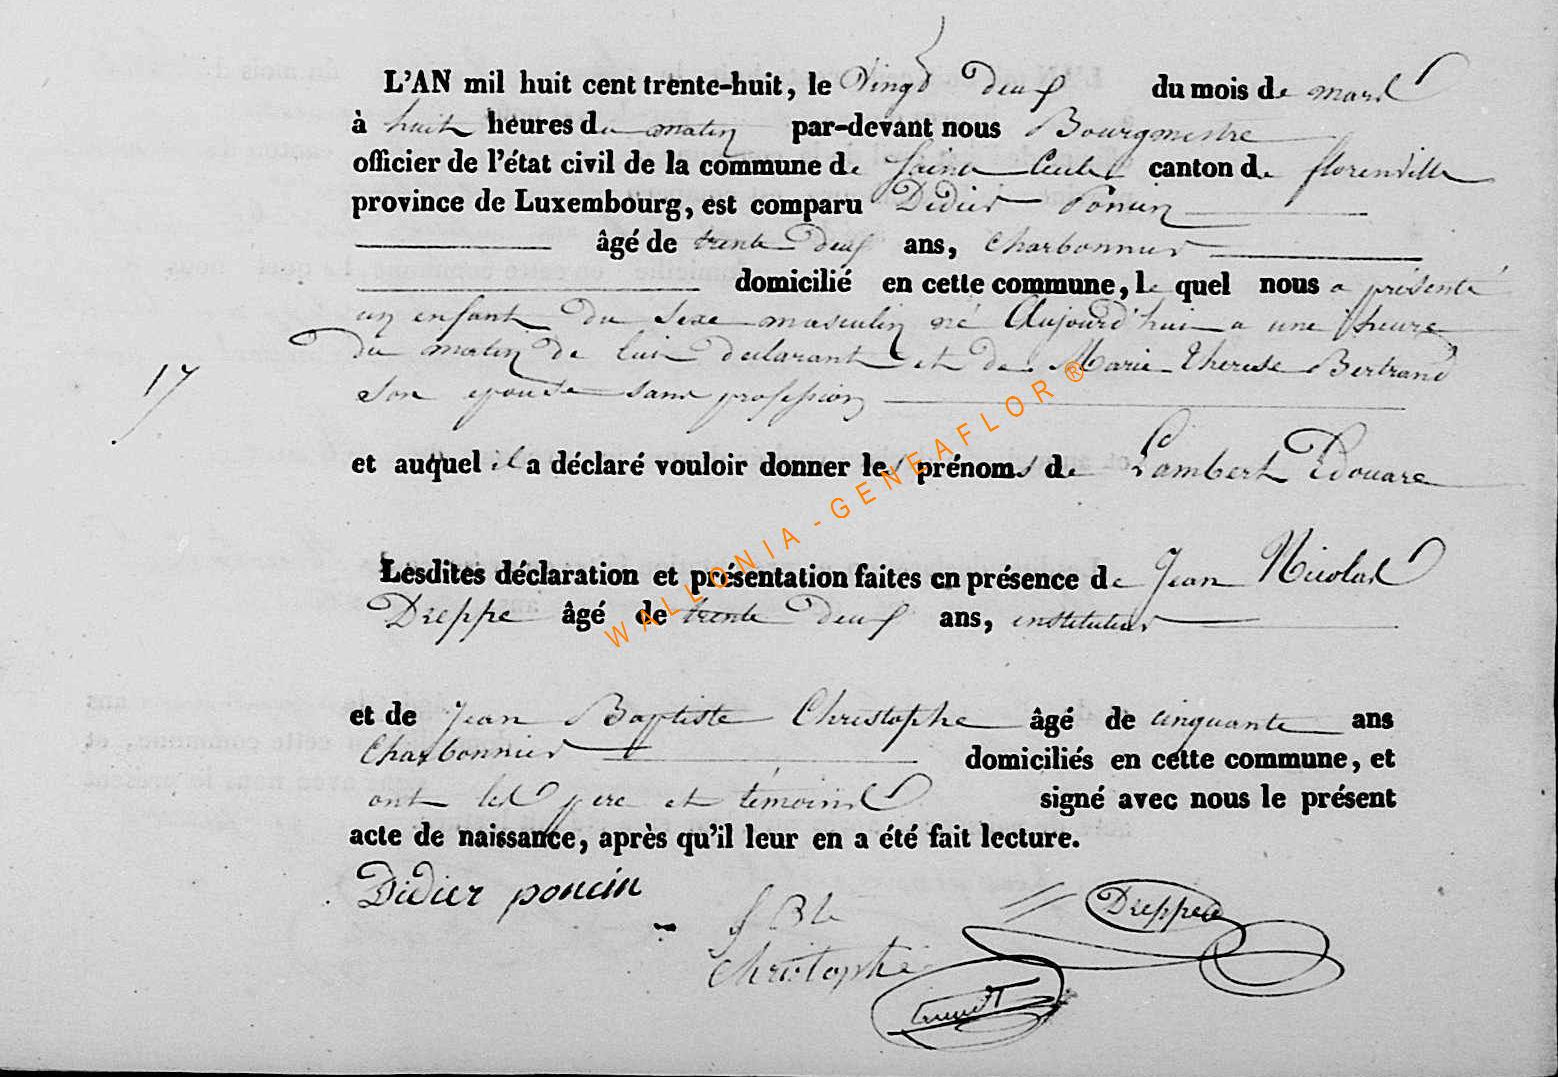 L'AN mil huit cent trente-huit, le Vingt Deux du mois de mars
à huit heures du matin par-devant nous Bourgmestre
officier de l'état civil de la commune de Sainte Cecile canton de florenville
province de Luxembourg, est comparu Didier Poncin
âgé de trente Deux ans, Charbonnier
domicilié en cette commune, le quel nous a présenté
un enfant Du Sexe masculin né Aujourd'hui a une heure
Du matin De lui declarant et De Marie Therese Bertrand
17
Son epouse sans profession
et auquel il a déclaré vouloir donner les prénoms de Lambert Edouare
Lesdites déclaration et présentation faites en présence de Jean Nicolas
Dreppe âgé de trente Deux ans, instituteur
et de Jean Baptiste Christophe âgé de cinquante ans
Charbonnier domiciliés en cette commune, et
ont les pere et témoins signé avec nous le présent
acte de naissance, après qu'il leur en a été fait lecture.
Didier poncin
J Bte Dreppe
Christophe
WALLONIA-GENEAFLOR®